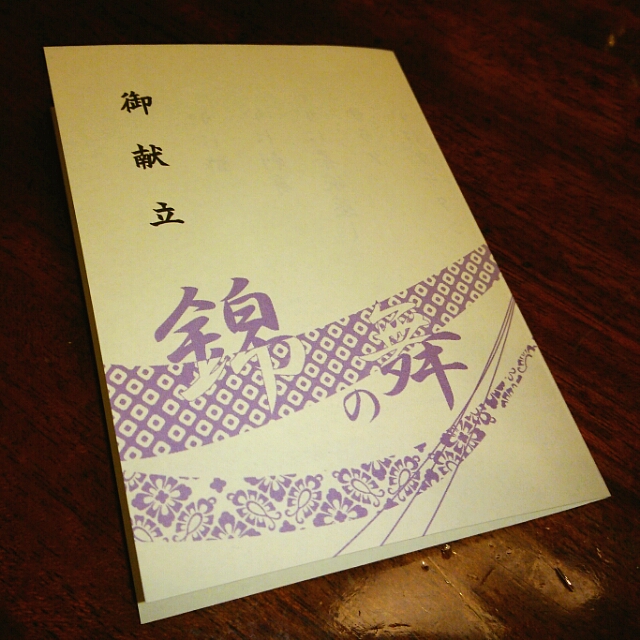 御献立
錦の舞